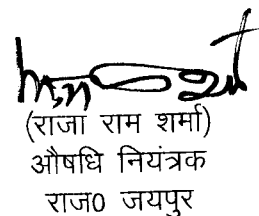 (राजा राम शर्मा)
औषधि नियंत्रक
राज0 जयपुर